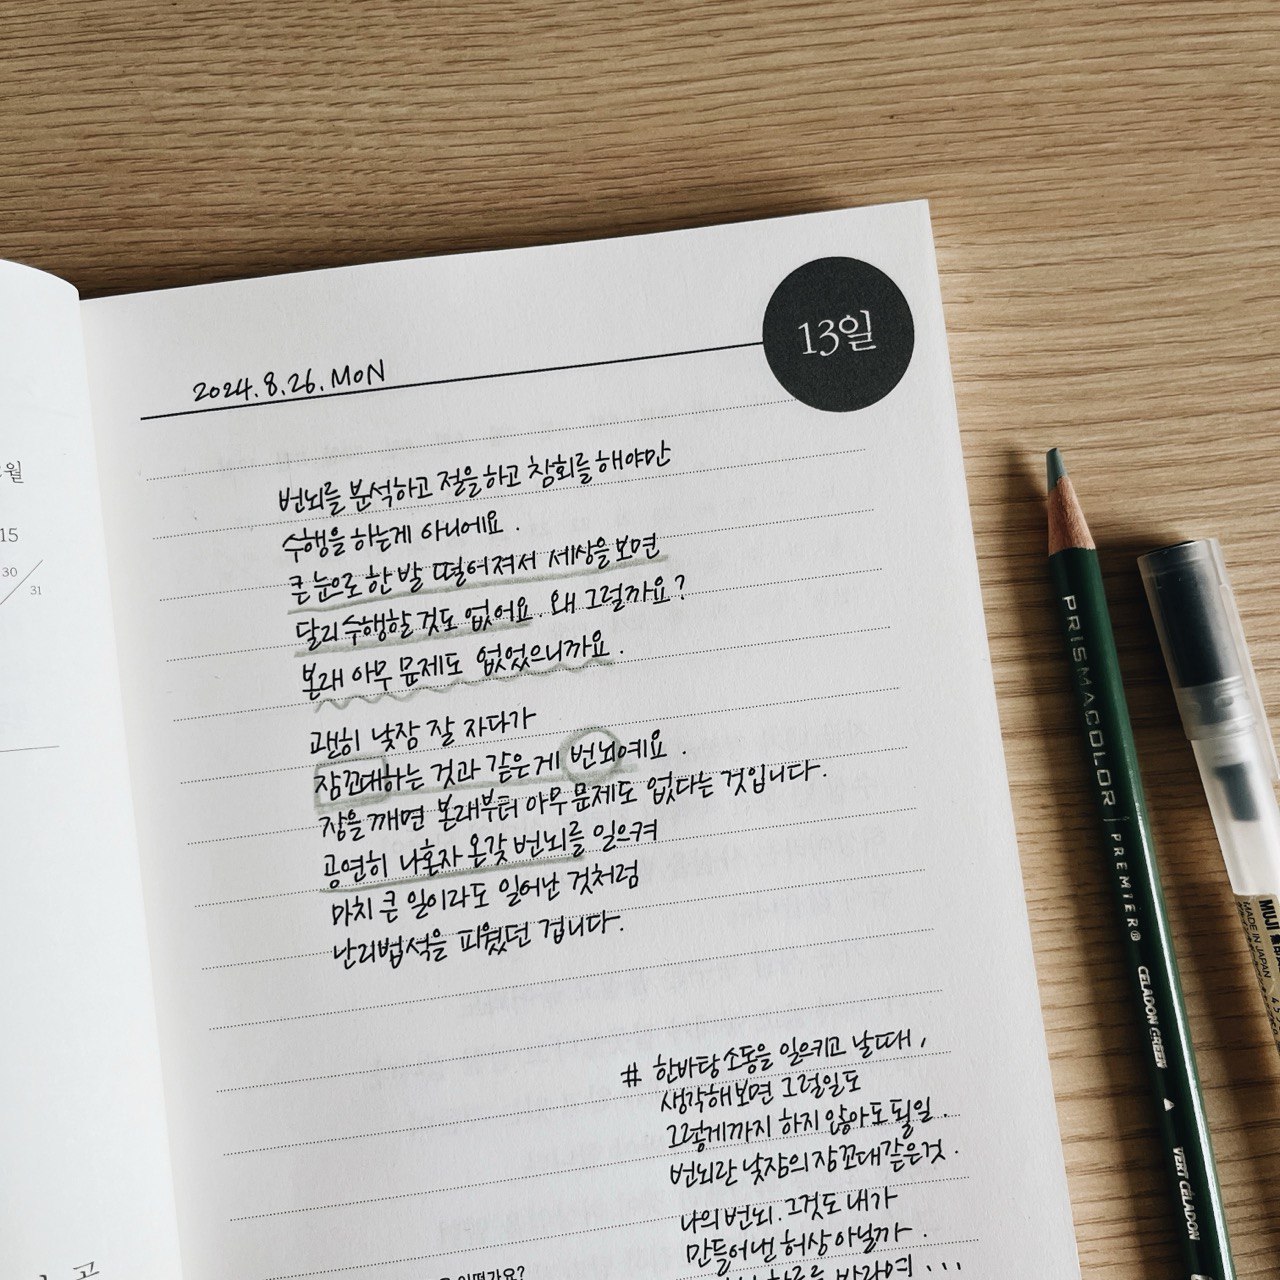 13일
2024.8.26.MON
번뇌를 분석하고 절을하고 참회를 해야만
수행을 하는게 아니에요.
큰 눈으로 한 발 떨어져서 세상을 보면
달리 수행할 것도 없어요. 왜 그럴까요?
본래 아무 문제도 없었으니까요.
괜히 낮잠 잘 자다가
잠꼬대하는 것과 같은게 번뇌예요.
잠을 깨면 본래부터 아무 문제도 없다는 것입니다.
공연히 나혼자 온갖 번뇌를 일으켜
마치 큰 일이라도 일어난 것처럼
난리법석을 피웠던 겁니다.
# 한바탕 소동을 일으키고 날때,
생각해보면 그럴일도
그렇게까지 하지 않아도 될일.
번뇌란 낮잠의 잠꼬대같은것.
나의 번뇌. 그것도 내가
만들어낸 허상 아닐까.
하루를 바라며...
어떤가요?
월
15
30
31
PRISMACOLOR | PREMIER®
CELADON GREEN
VERT CÉLADON
MUJI
MADE IN JAPAN